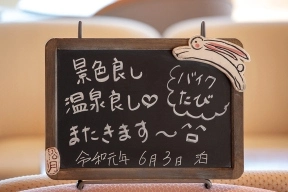 景色良し
温泉良し♡
またきます〜^^
バイク
たび
令和元年 6月3日 泊